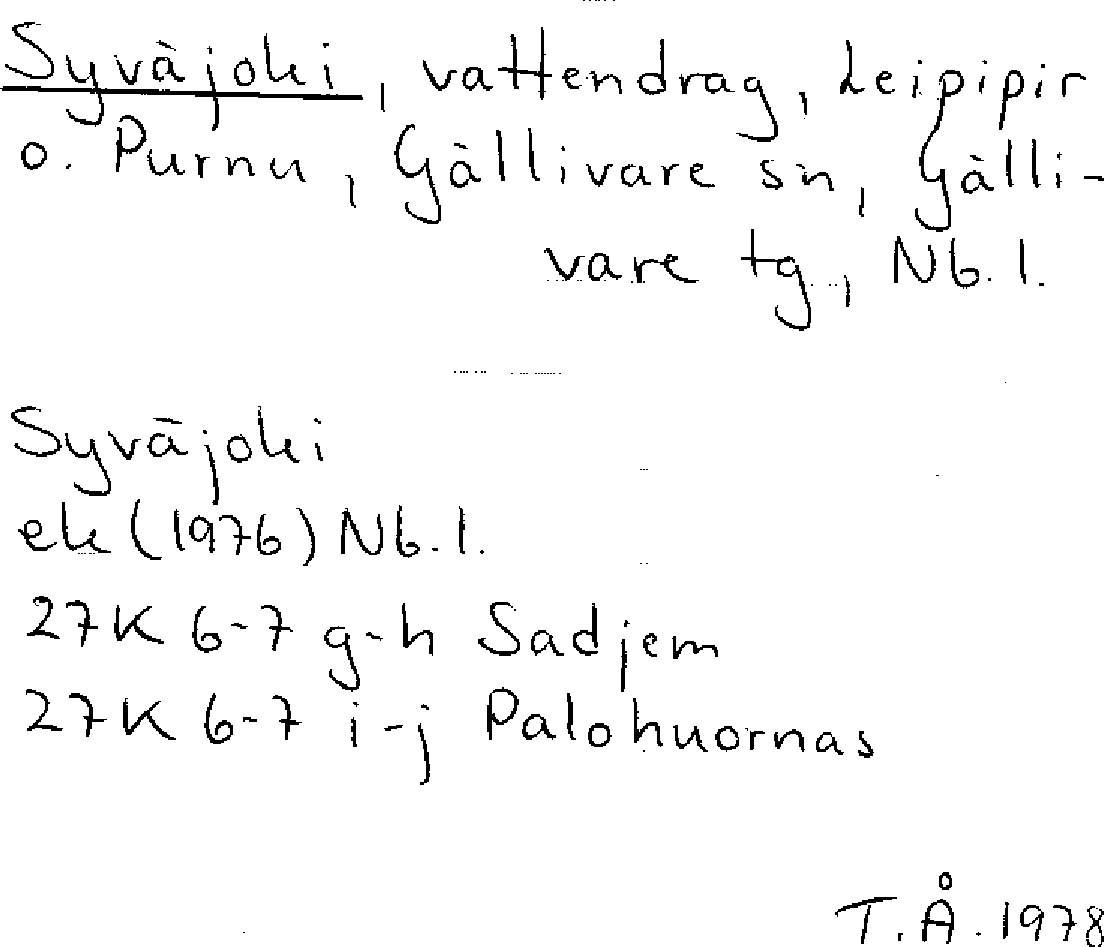 Syväjoki, vattendrag, Leipipir
o. Purnu, Gällivare sn, Gälli-
vare tg, Nb. l.
Syväjoki
ek (1976) Nb. l.
27K 6-7 g-h Sadjem
27K 6-7 i-j Palohuornas
T.Å. 1978